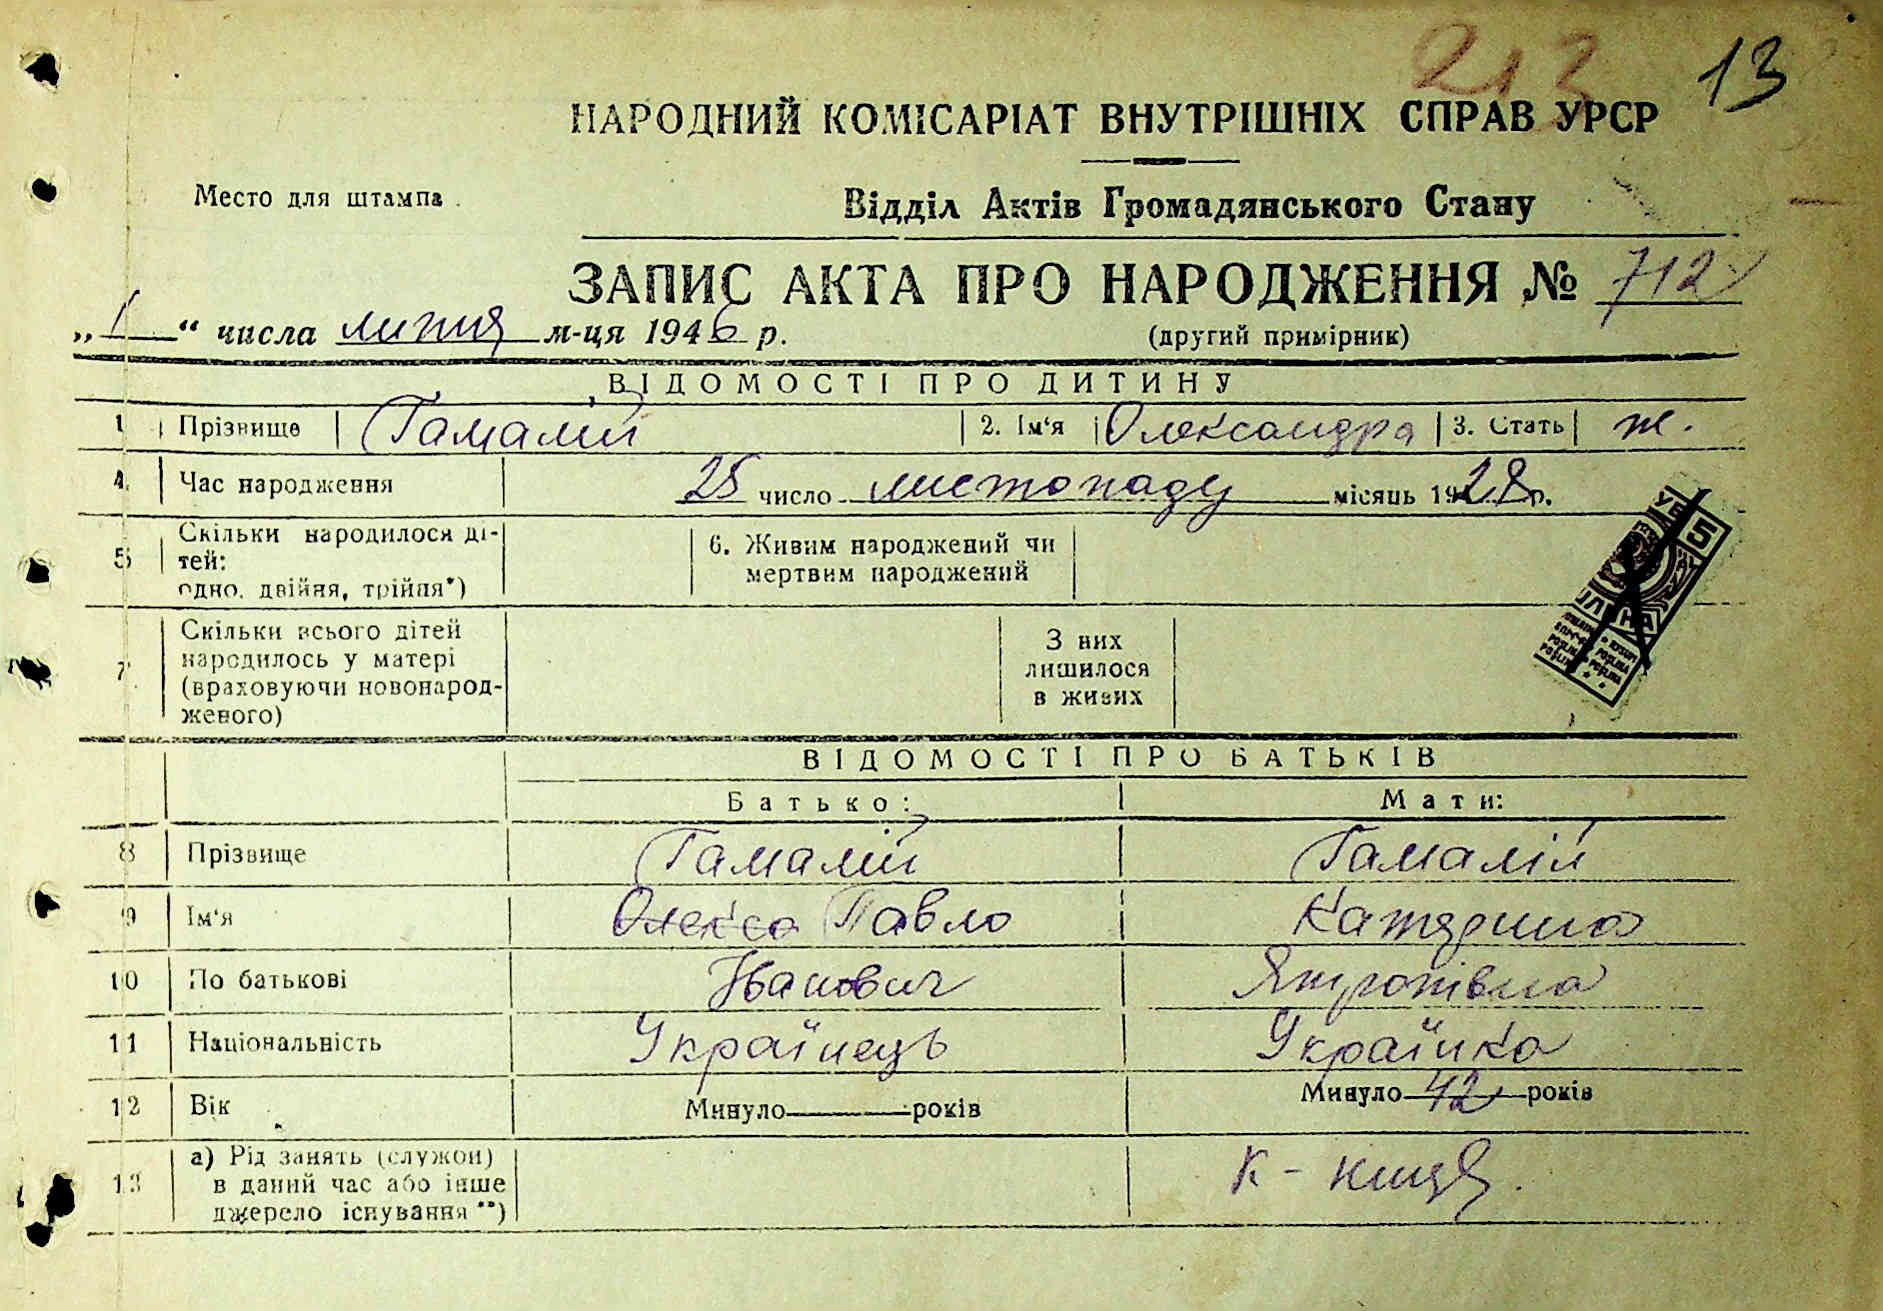 213 13
НАРОДНИЙ КОМІСАРІАТ ВНУТРІШНІХ СПРАВ УРСР
Место для штампа
Відділ Актів Громадянського Стану
ЗАПИС АКТА ПРО НАРОДЖЕННЯ № 712
„1“ числа липня м-ця 1946 р. (другий примірник)
ВІДОМОСТІ ПРО ДИТИНУ
1 Прізвище Гамалій 2. Ім‘я Олександра 3. Стать ж.
4. Час народження 25 число листопаду місяць 1928 р.
5 Скільки народилося ді-
тей:
одно, двійня, трійня*)
6. Живим народжений чи
мертвим народжений
7. Скільки всього дітей
народилось у матері
(враховуючи новонарод-
женого)
З них
лишилося
в живих
ВІДОМОСТІ ПРО БАТЬКІВ
Батько: Мати:
8 Прізвище Гамалій Гамалій
9 Ім‘я Олекса Павло Катерина
10 По батькові Іванович
11 Національність Українець Українка
12 Вік Минуло років Минуло 42 років
13 а) Рід занять (служби)
в даний час або інше
джерело існування **)
К-ниця.
5